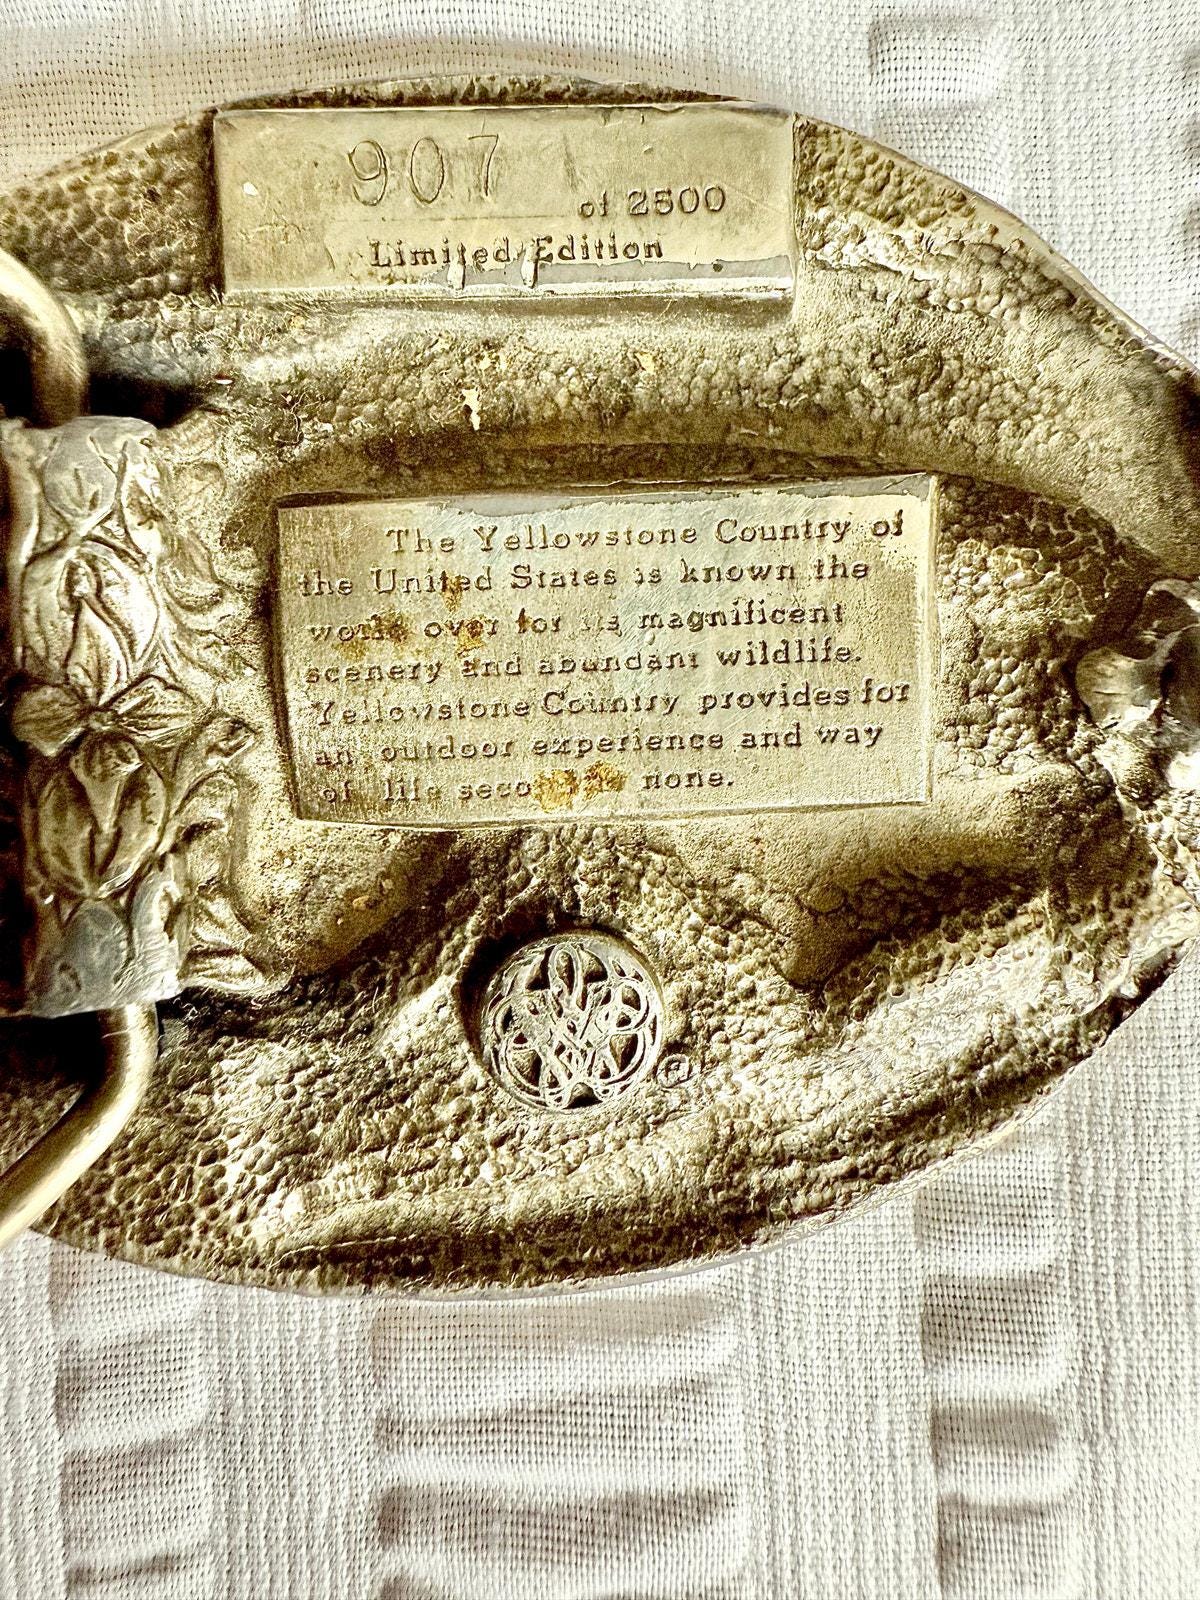 907 of 2500
Limited Edition
The Yellowstone Country of
the United States is known the
world over for its magnificent
scenery and abundant wildlife.
Yellowstone Country provides for
an outdoor experience and way
of life second to none.
®